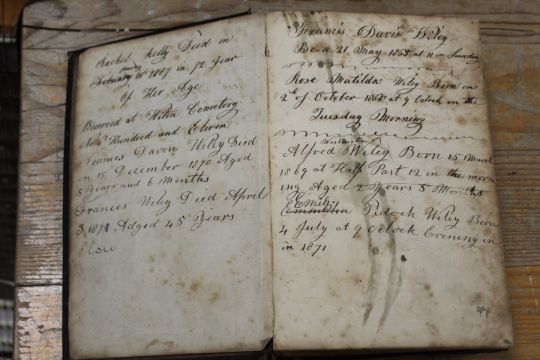 Rachel Kelly Died in
February 1867 in 72 Year
of Her Age
Bueried at Cemetery
Hundred and Eleven
Francis Daven Wiley Died
on 15 December 1870 Aged
5 Years and 6 Months
Frances Wiley Died April
3, 1871 Adged 45 Years
Francis Davis Wiley
Born 21 May 1865 at 11 on Sunday
Rose Matilda Wiley Born on
2nd of October 1862 at 9 Oclock on the
Tuesday Morning
Washington
Alfred Wiley Born 15 March
1869 at Half Past 12 in the morn
ing Aged 2 Years 5 Months
Emily
Pidock Wiley Born
4 July at 9 Oclock Evening in
in 1871